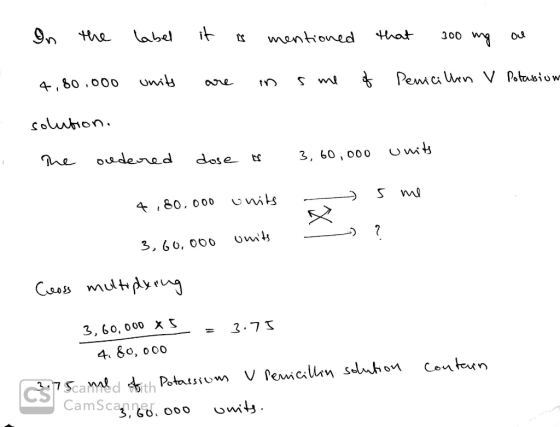 In the label it is mentioned that 300 mg or
4,80,000 units are in 5 ml of Penicillin V Potassium
solution.
The ordered dose is 3,60,000 units
4,80,000 units → 5 ml
3,60,000 units → ?
Cross multiplying
3,60,000 x 5 = 3.75
4,80,000
3.75 ml of Potassium V Penicillin solution contain
3,60,000 units.
CS Scanned with
CamScanner